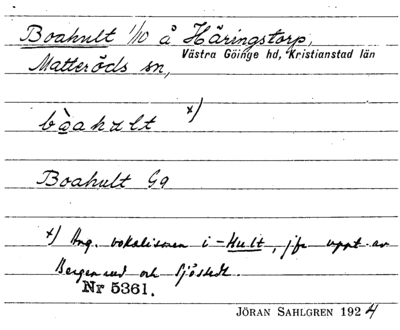 Boahult 1/10 å Häringstorp,
Västra Göinge hd, Kristianstad län
Matteröds sn,
bòahult x)
Boahult Gg
x) Ang. vokalismen i -Hult, jfr uppt. av
Bergenlund och Sjöstedt.
Nr 5361.
JÖRAN SAHLGREN 1924